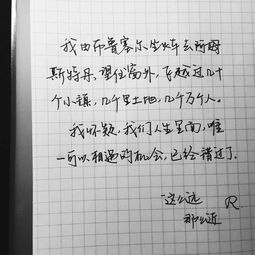 我由布鲁塞尔坐火车去阿姆
斯特丹，望住窗外，飞越过几十
个小镇，几千里土地，几千万人。
我怀疑，我们人生里面，唯
一可以相遇的机会，已经错过了。
这么远
那么近
R